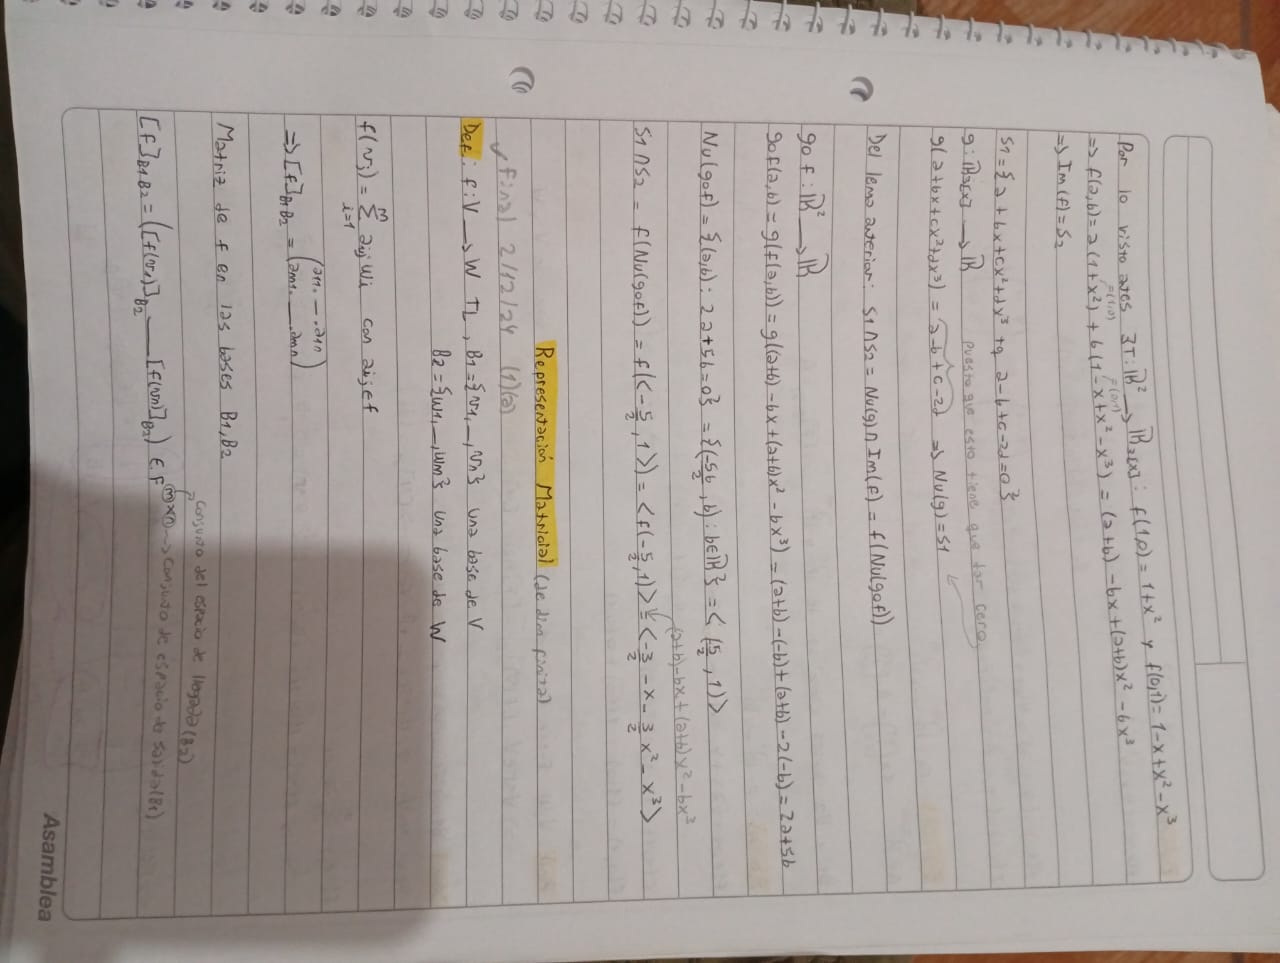 Por lo visto antes ∃T: ℝ² → ℝ₃[x]: f(1,0) = 1+x² y f(0,1) = 1-x+x²-x³
=(1,0) =(0,1)
⇒ f(a,b) = a(1+x²) + b(1-x+x²-x³) = (a+b) - bx + (a+b)x² - bx³
⇒ Im(f) = S₂
S1 = {a+bx+cx²+dx³ tq a-b+c-2d=0}
puesto que esto tiene que dar cero
g: ℝ₃[x] → ℝ
g(a+bx+cx²+dx³) = a-b+c-2d ⇒ Nu(g) = S1
Del lema anterior: S1∩S2 = Nu(g)∩Im(f) = f(Nu(gof))
gof: ℝ² → ℝ
gof(a,b) = g(f(a,b)) = g((a+b) - bx + (a+b)x² - bx³) = (a+b) - (-b) + (a+b) - 2(-b) = 2a+5b
Nu(gof) = {(a,b): 2a+5b=0} = {(-5b/2, b): b∈ℝ} = <(-5/2, 1)>
(a+b)-bx+(a+b)x²-bx³
S1∩S2 = f(Nu(gof)) = f(<-5/2, 1>) = <f(-5/2, 1)> = <-3/2 - x - 3/2 x² - x³>
Representación Matricial (de dim finita)
✓ final 2/12/24 (1)(a)
Def: f: V → W TL, B1 = {v1, —, vn} una base de V
B2 = {w1, —, wm} una base de W
f(vj) = Σ(i=1, m) aij wi con aij ∈ F
⇒ [f]B1B2 = (a11. — .a1n
am1. — .amn)
Matriz de f en las bases B1, B2
conjunto del espacio de llegada (B2)
[f]B1B2 = ([f(v1)]B2 — [f(vn)]B2) ∈ F^(m×n) → conjunto de espacio de salida (B1)
Asamblea